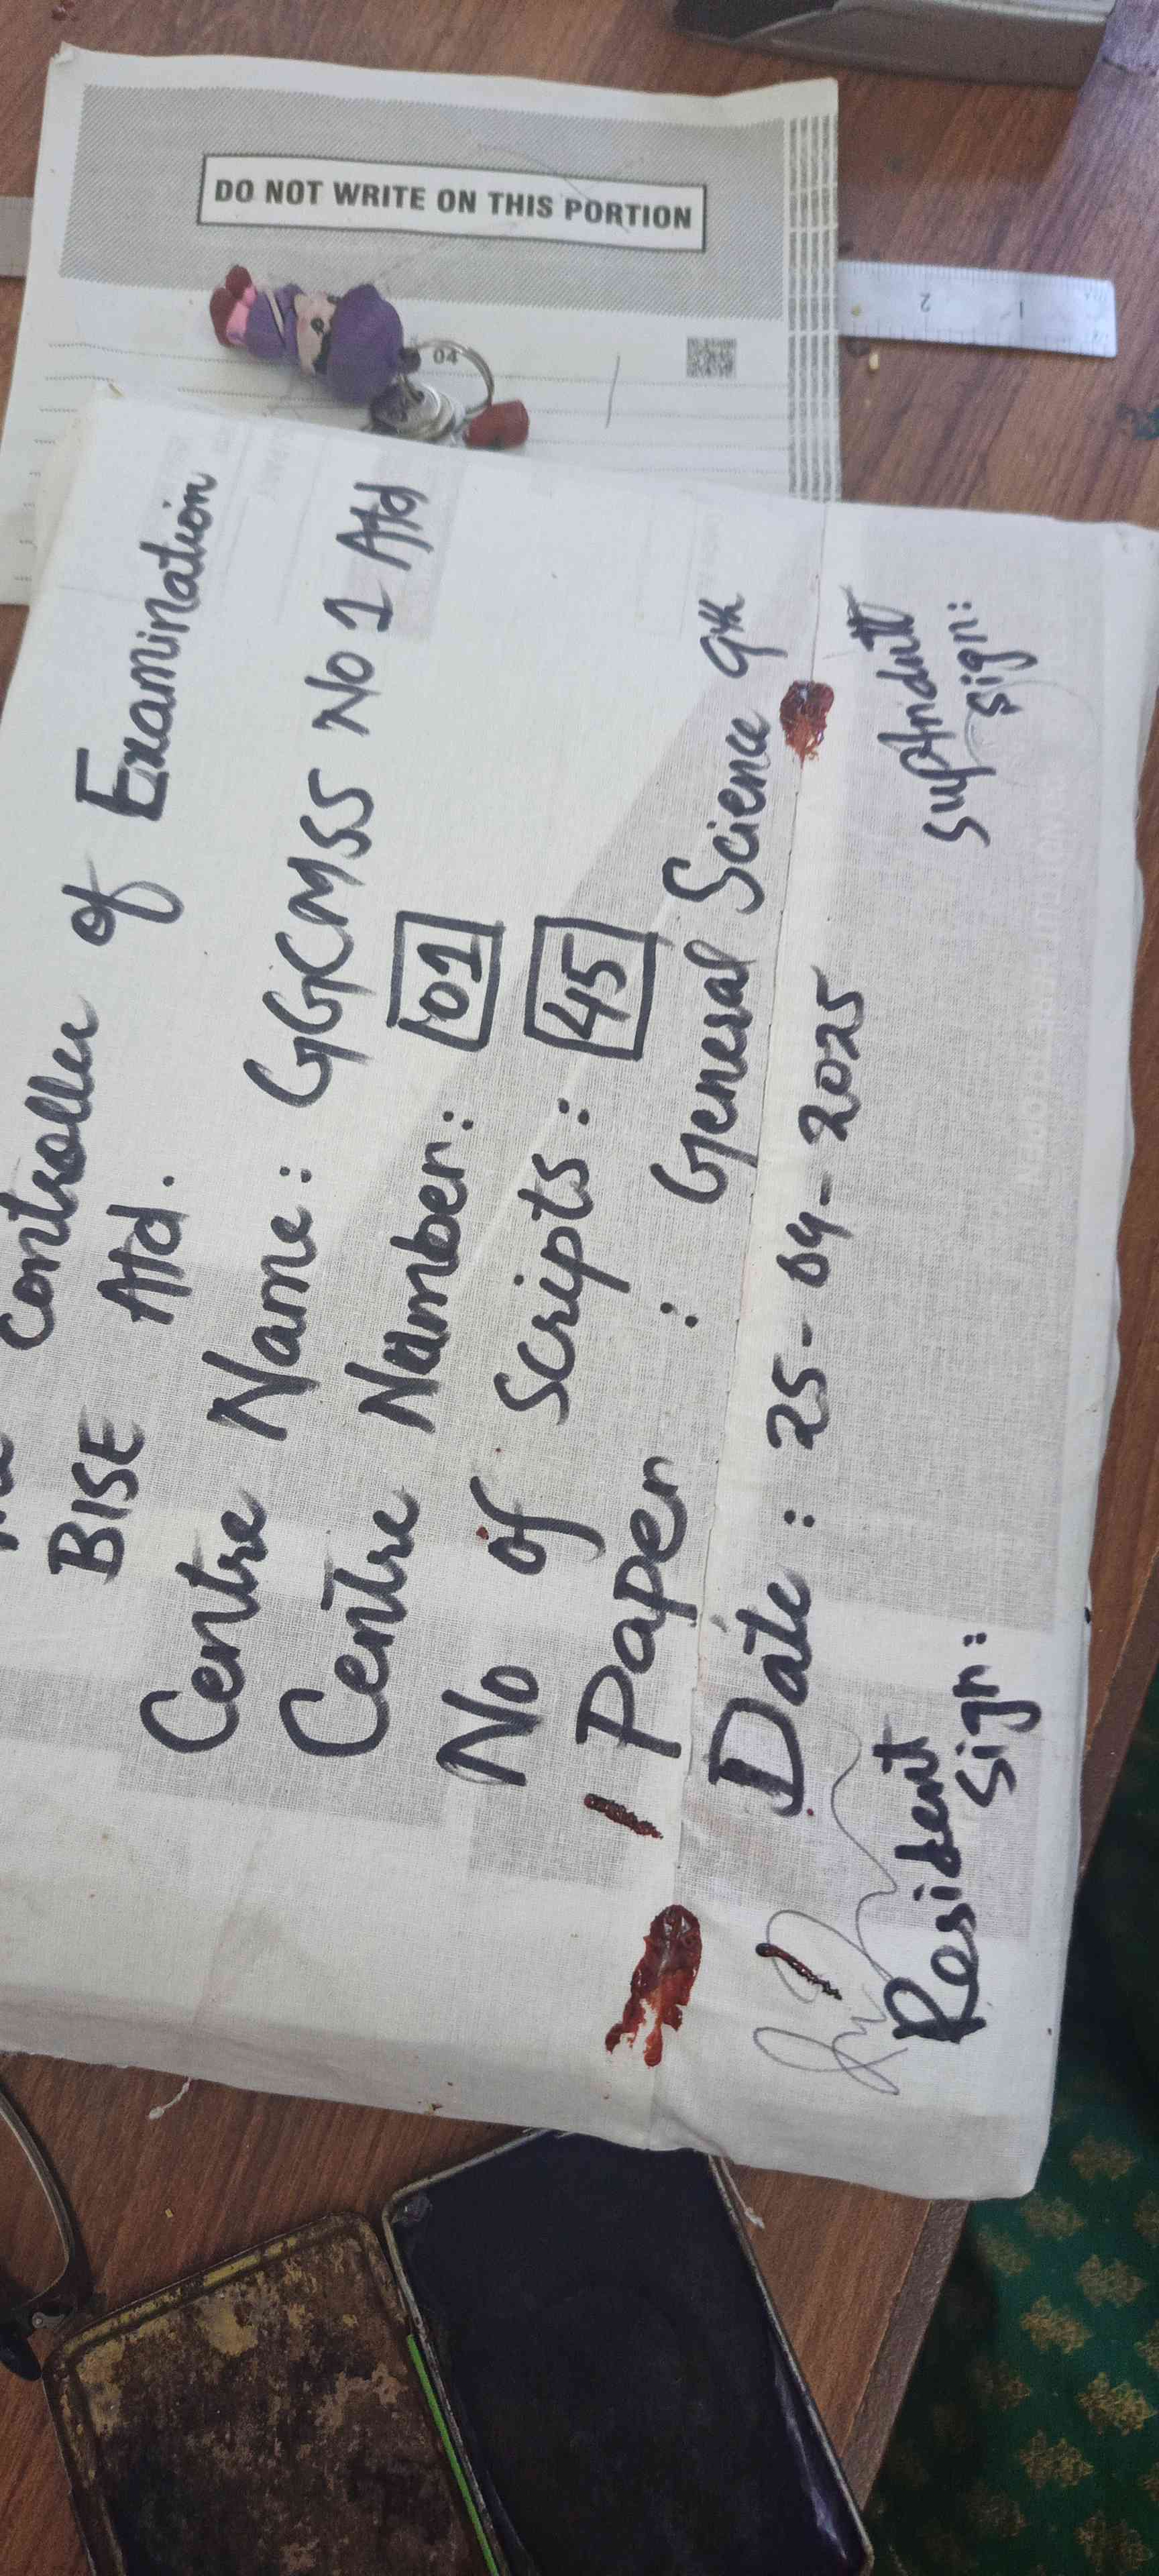 DO NOT WRITE ON THIS PORTION
04
2 1
Controller of Examination
BISE Atd.
Centre Name: GGCMSS No 1 Atd
Centre Number: 01
No of Scripts: 45
Paper : General Science 9th
Date : 25-09-2025
Resident
Sign:
Suptndntt
Sign: